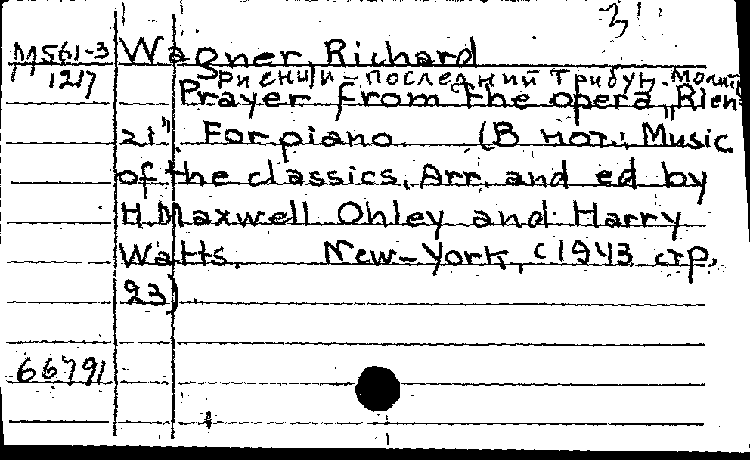 31
М561-3 Wagner, Richard
1217 Риенци - последний трибун. Молит
Prayer from the opera "Rien-
zi". For piano. (В нот.: Music
of the classics, Arr. and ed by
H. Maxwell Ohley and Harry
Watts. New-York, c1943 стр.
23).
66791